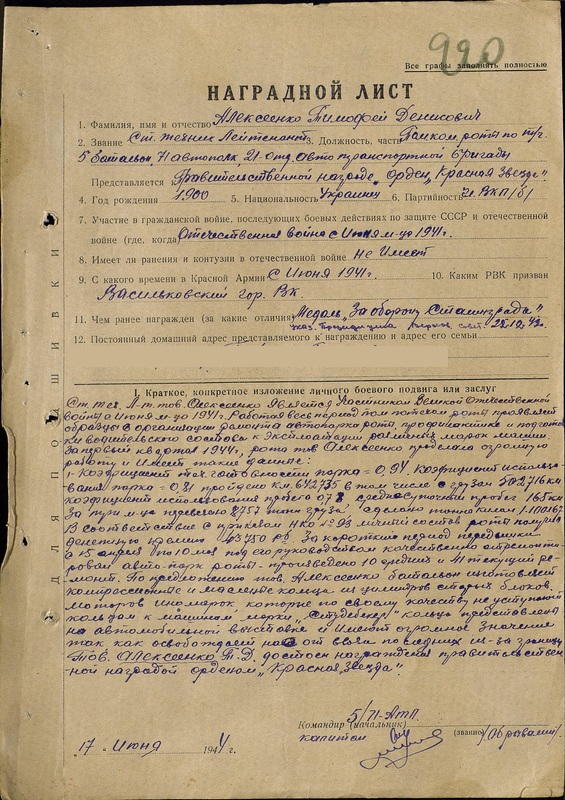 990
Все графы заполнять полностью
НАГРАДНОЙ ЛИСТ
1. Фамилия, имя и отчество Алексеенко Тимофей Денисович
2. Звание Ст. техник Лейтенант 3. Должность, часть Помком. роты по т/ч
5 батальон, 71 автополк 21-отд. авто транспортной бригады
Представляется Правительственной награде Орден „Красная Звезда"
4. Год рождения 1900 5. Национальность Украинец 6. Партийность Чл. ВКП/б/
7. Участие в гражданской войне, последующих боевых действиях по защите СССР и отечественной
войне (где, когда) Отечественная война с Июня м-ца 1941г.
8. Имеет ли ранения и контузии в отечественной войне Не Имеет
9. С какого времени в Красной Армии С Июня 1941г. 10. Каким РВК призван
Васильковский гор. ВК.
11. Чем ранее награжден (за какие отличия) Медаль „За оборону Сталинграда"
12. Постоянный домашний адрес представляемого к награждению и адрес его семьи
ДЛЯ ПОДШИВКИ
I. Краткое, конкретное изложение личного боевого подвига или заслуг
Ст. тех. Л-т тов. Алексеенко является участником Великой Отечественной
войны с Июня м-ца 1941г. Работая весь период пом потехом роты проявляет
образцы в организации ремонта автопарка роты, профилактике и подготов
ки водительского состава к эксплоатации различных марок машин.
За первый квартал 1944г, рота тов Алексеенко проделала огромную
работу и имеет такие данные:
1- Коэфициент техготовности парка = 0,94 Коэфициент использо-
вания парка = 0,81 пройдено км. 642735 в том числе с грузом 502716 км
коэфициент использования пробега 0,78 среднесуточный пробег 165 км
За три м-ца перевезено 8757 тонн груза сделано тоннокилом 1.100.167
В соответствие с приказом НКО № 93 личный состав роты получил
денежную премию 63750 р. За короткий период передышки
с 15 апреля по 10 мая под его руководством качественно отремонти-
рован авто-парк роты - произведено 10 средних и 31 текущий ре-
монт. По предложению тов. Алексеенко батальон изготовляет
компрессионные и масленые кольца из цилиндров старых блоков,
моторов иномарок, которые по своему качеству не уступают
кольцам к машинам марки „Студебекер" - кольца представлены
на автомобильной выставке и имеют огромное значение
так как освобождают нас от ввоза последних из-за границы
Тов. Алексеенко Т. Д. достоен награждения правительствен-
ной наградой орденом „Красная Звезда".
5/71-Атп
Командир (начальник)
капитан (звание)
17 Июня 1944 г.